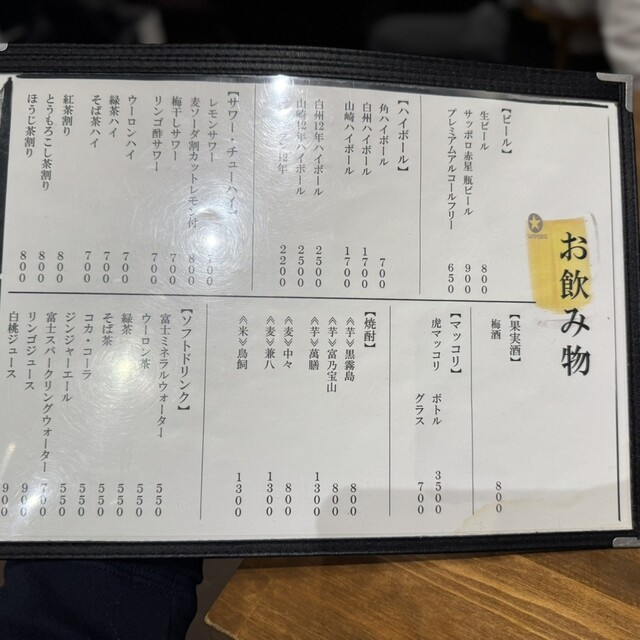 お飲み物
【ビール】
生ビール 800
サッポロ赤星 瓶ビール 900
プレミアムアルコールフリー 650
【ハイボール】
角ハイボール 700
白州ハイボール 1700
山崎ハイボール 1700
白州12年ハイボール 2500
山崎12年ハイボール 2500
12年 2200
【サワー・チューハイ】
レモンサワー
麦ソーダ割カットレモン付 800
梅干しサワー 700
リンゴ酢サワー 700
ウーロンハイ 700
緑茶ハイ 700
そば茶ハイ 700
紅茶割り 800
とうもろこし茶割り 800
ほうじ茶割り 800
【果実酒】
梅酒 800
【マッコリ】
虎マッコリ ボトル 3500
グラス 700
【焼酎】
《芋》黒霧島 800
《芋》富乃宝山 800
《芋》萬膳 1300
《麦》中々 800
《麦》兼八 1300
《米》鳥飼 1300
【ソフトドリンク】
富士ミネラルウォーター 550
ウーロン茶 550
緑茶 550
そば茶 550
コカ・コーラ 550
ジンジャーエール 550
富士スパークリングウォーター
リンゴジュース 900
白桃ジュース 900